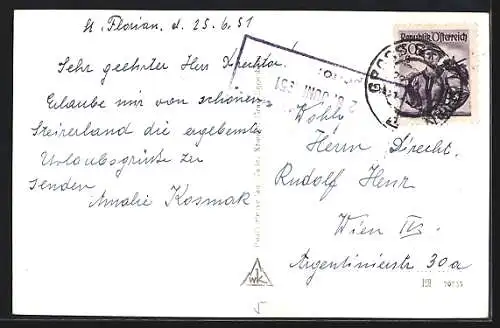 St. Florian, d. 25.6.51
Sehr geehrter Herr Direktor!
Erlaube mir von schönen
Steirerland die ergebenste
Urlaubsgrüsse zu
senden
Amalie Kosmak
Republik Österreich
GROSS
26. JUNI 1951
Wohlg.
Herrn Direkt.
Rudolf Henz
Wien IV.
Argentinierstr 30a
WK